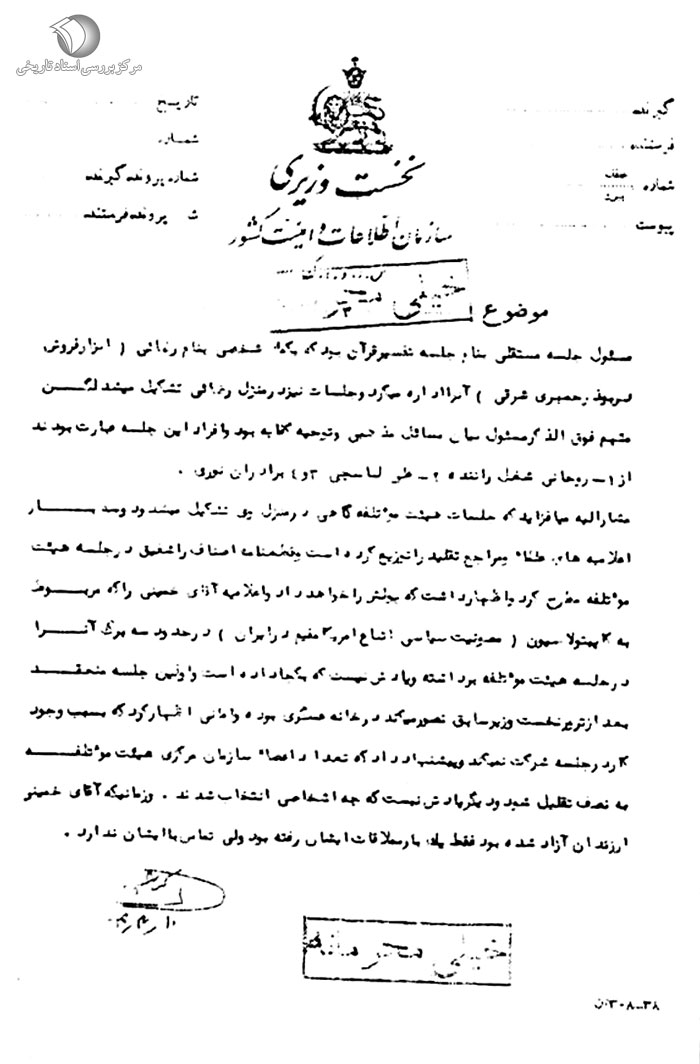 مرکز بررسی اسناد تاریخی
گیرنده
فرستنده
شماره
پیوست
تاریخ
شماره
شماره پرونده گیرنده
پرونده فرستنده
نخست وزیری
سازمان اطلاعات و امنیت کشور
خیلی محر
موضوع
مسئول جلسه مستقلی بنام جلسه تفسیر قرآن بود که شخصی بنام رضائی ( ابزارفروش
شرقی ) آنرا اداره میکرد و جلسات نیز در منزل رضائی تشکیل میشد لکن
متهم فوق الذکر مسئول بیان مسائل مذهبی و توجیه بود و افراد این جلسه عبارت بودند
از ۱- روحانی شغل راننده ۲- علی ۳ و ۴ برادران نوری .
مشارالیه میافزاید که جلسات هیئت موتلفه گاهی در منزل وی تشکیل میشد و سه بار
اعلامیه های مراجع تقلید را توزیع کرده است و قطعنامه اصناف را شفیق در جلسه هیئت
موتلفه مطرح کرد و اظهار داشت که را خواهد داد و اعلامیه آقای خمینی را که مربوط
به کاپیتولاسیون ( مصونیت سیاسی اتباع امریکا مقیم در ایران ) در حدود سه برگ آنرا
در جلسه هیئت موتلفه برداشته و یادش نیست که بکجا داده است و اولین جلسه منعقد
بعد از ترور نخست وزیر سابق تصور میکند در خانه عسگری بوده و امانی اظهار کرد که بسبب وجود
کار در جلسه شرکت نمیکند و پیشنهاد داد که تعداد اعضاء سازمان مرکزی هیئت موتلفه
به نصف تقلیل شود و دیگر یادش نیست که چه اشخاصی انتخاب شدند . و زمانیکه آقای خمینی
از زندان آزاد شده بود فقط یک بار بملاقات ایشان رفته بود ولی تماس با ایشان ندارد .
خیلی محرمانه